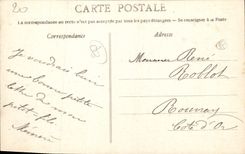 20
CARTE POSTALE
La correspondance au recto n'est pas acceptée par tous les pays étrangers. — Se renseigner à la Poste
Correspondance
Adresse
Je voudrais bien
une bonne petite
lettre de mon
petit-fils
Monsieur René
Rollot
Rouvray
Côte d'Or